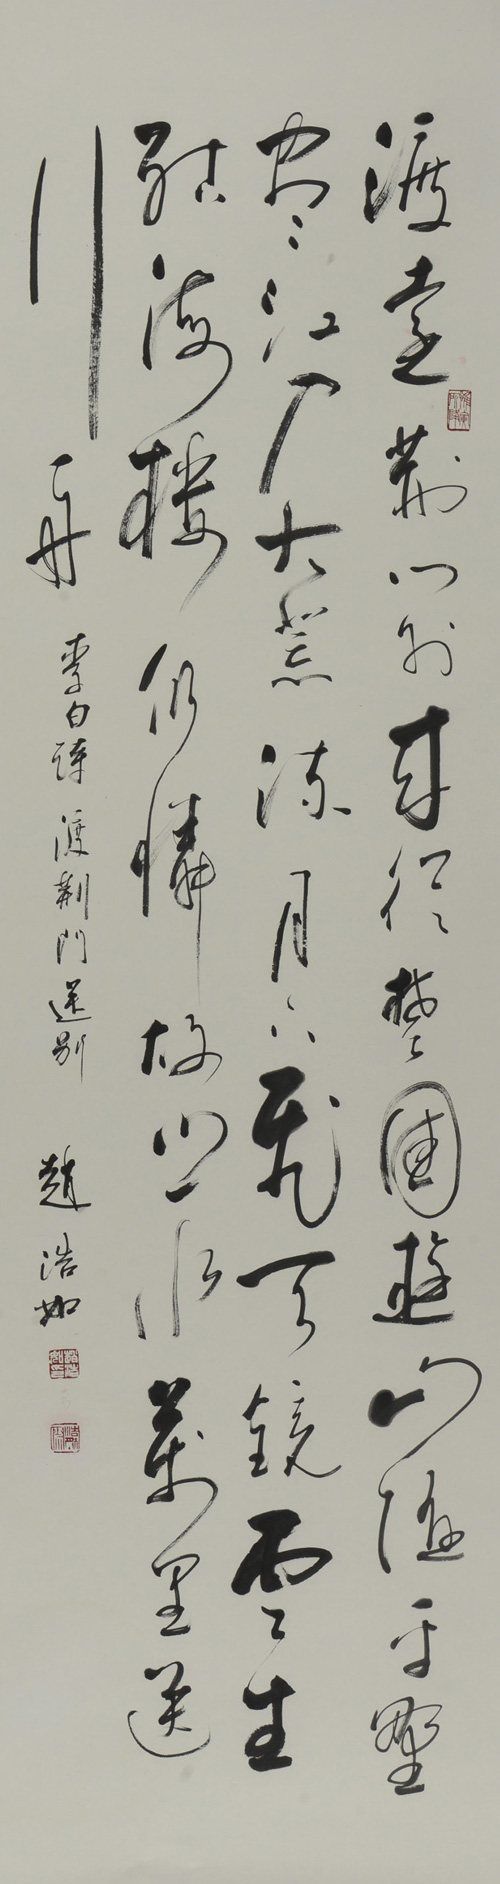 渡遠荊門外来從楚國遊山隨平野
盡江入大荒流月下飛天鏡雲生
結海樓仍憐故鄉水萬里送
行舟 李白詩渡荊門送別 趙浩如